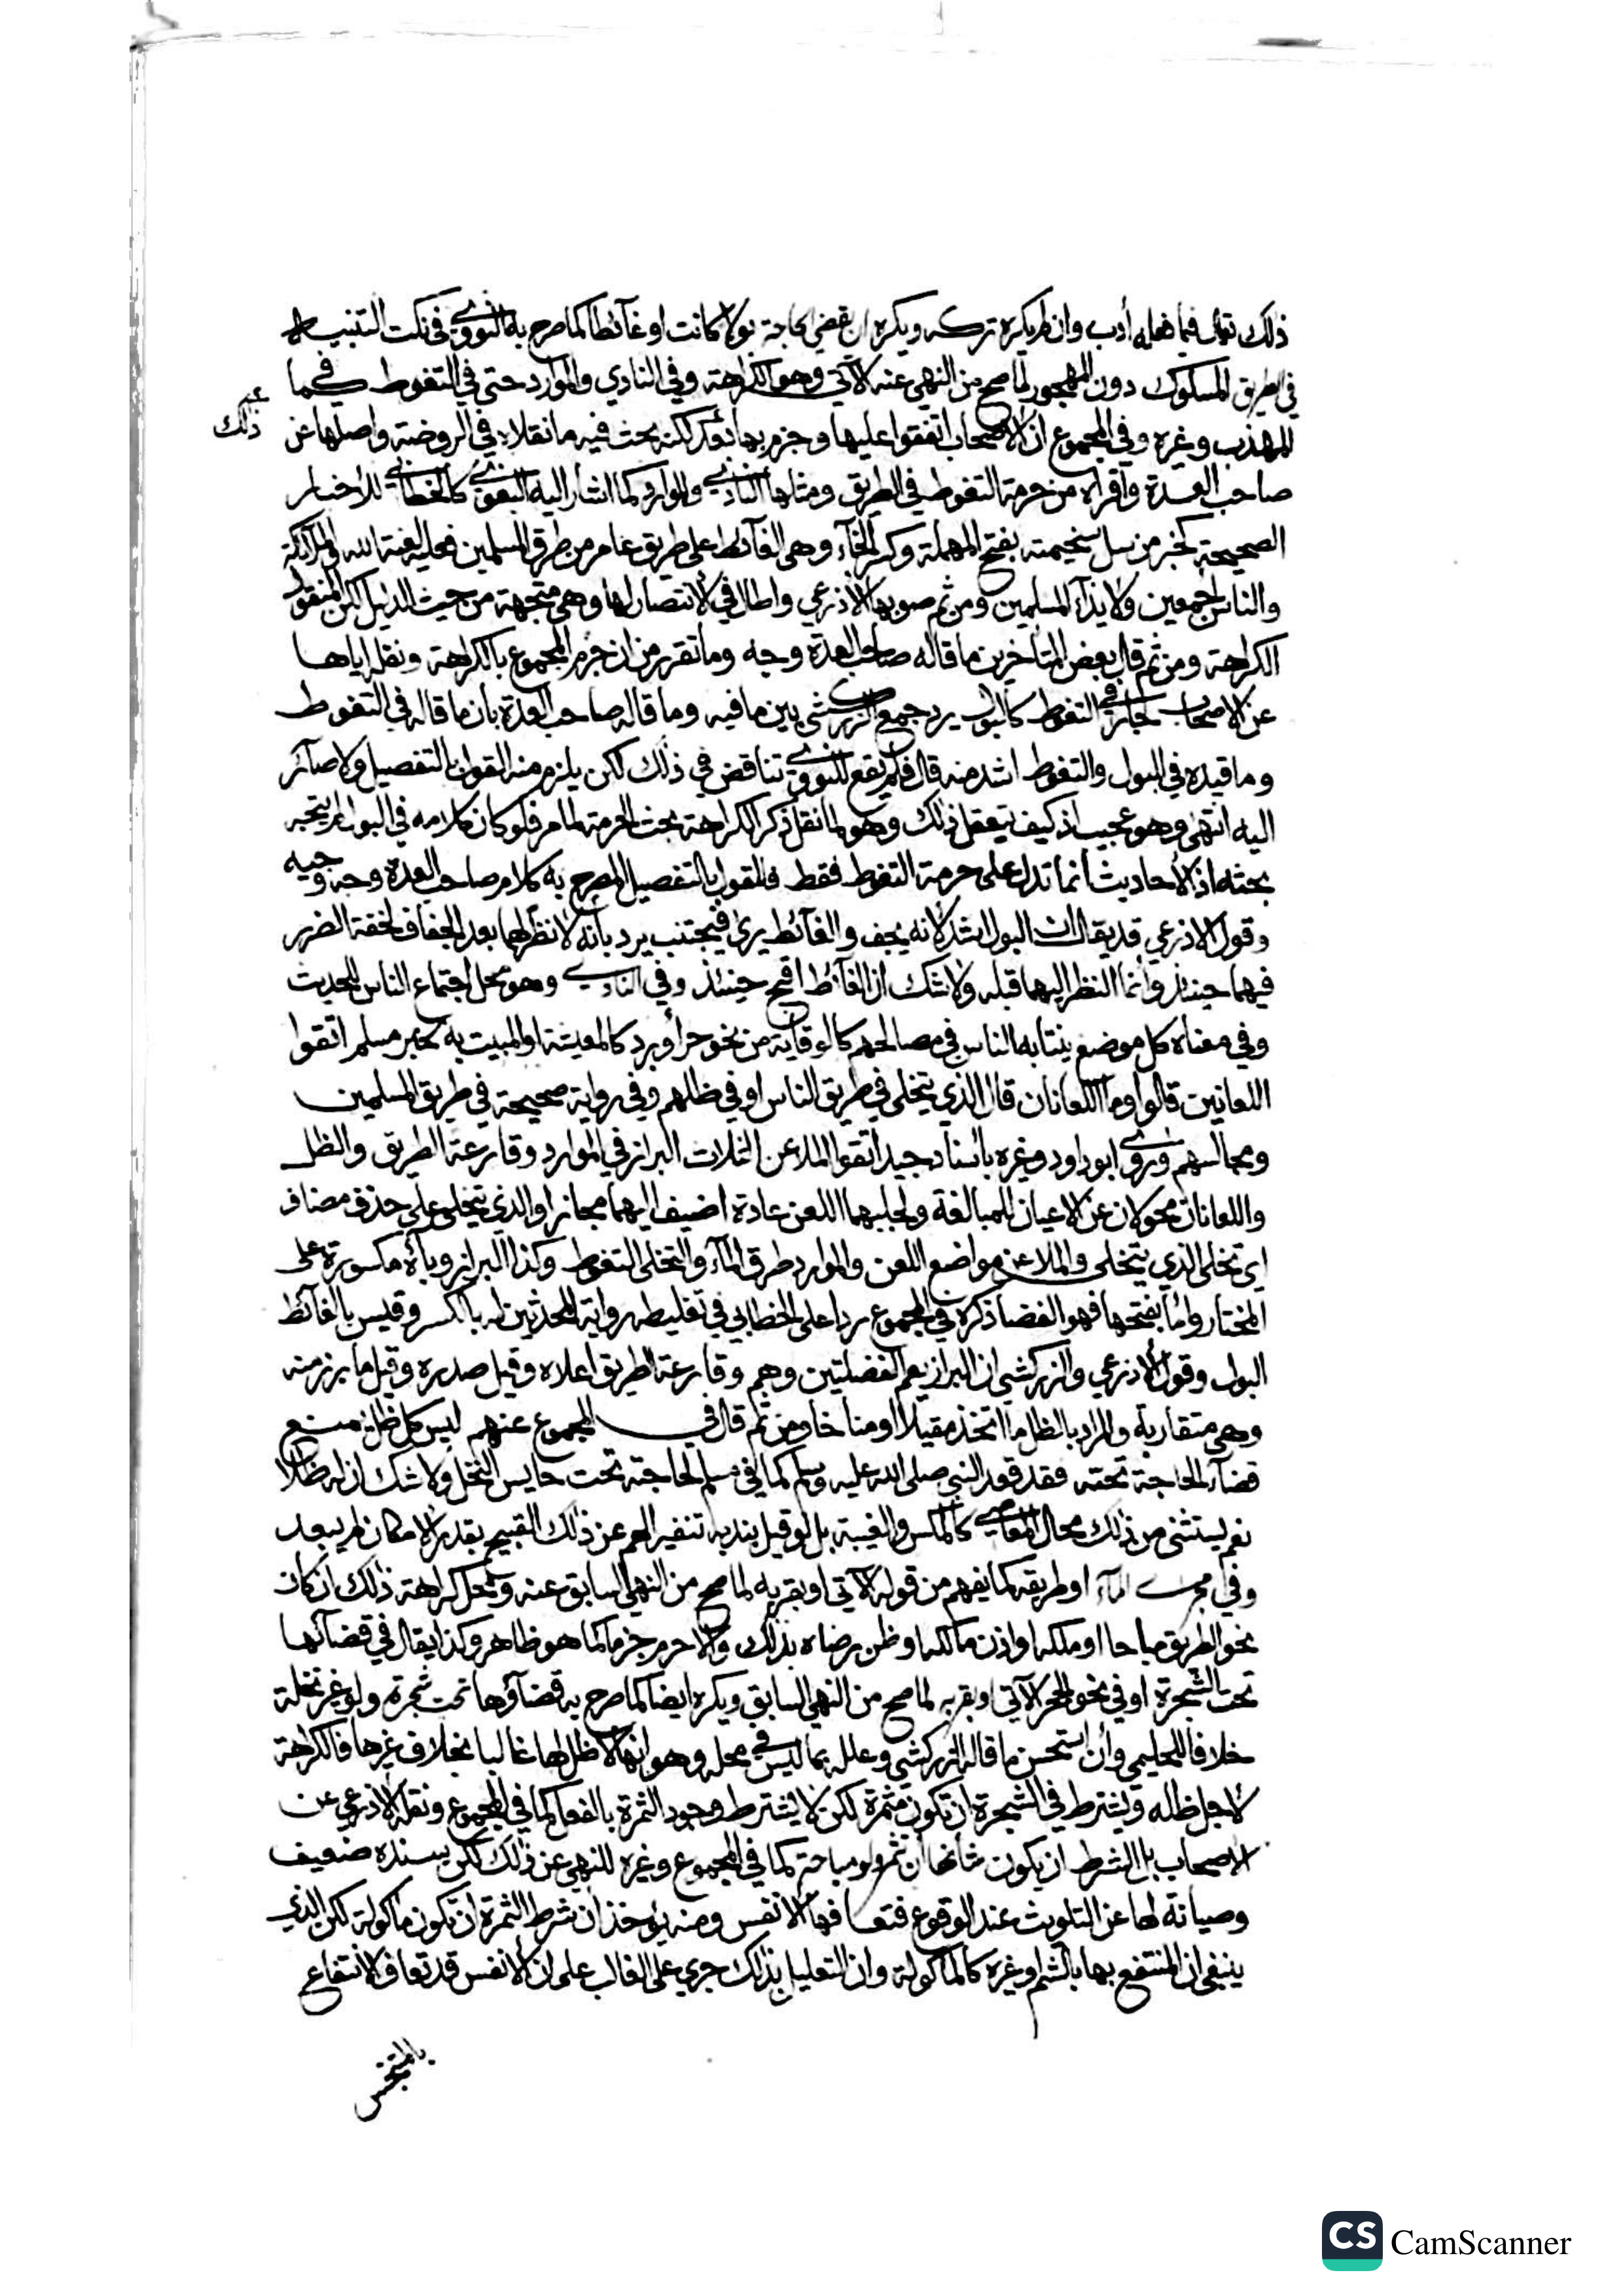 ذلك فيما فعله أدب وان لم يكره تركه ويكره ان يقضي الحاجة بولا كانت او غآئطا كما صرح به النووي في نكت التنبيه
في الطريق المسلوك دون المهجور لما صح من النهي عنه الآتي وهو الكراهة وفي النادي والموارد حتى في التغوط كما في
غير ذلك
المهذب وغيره وفي المجموع ان الاصحاب اتفقوا عليها وجزم بها لكنه بحث فيه ما نقلاه في الروضة واصلها عن
صاحب العدة واقراه من حرمة التغوط في الطريق ومثلها النادي والموارد كما اشار اليه البغوي كالخطابي للاخبار
الصحيحة كخبر من سل سخيمته بفتح المهملة وكسر الخآء وهي الغآئط على طريق عامر من طرق المسلمين فعليه لعنة الله والملآئكة
والناس اجمعين ولايذآء المسلمين ومن ثم صوبها الاذرعي واطال في الانتصار لها وهي متجهة من حيث الدليل لكن المنقول
الكراهة ومن ثم قال بعض المتأخرين ما قاله صاحب العدة وجه وما تقرر من ان جزم المجموع بالكراهة ونقله اياها
عن الاصحاب جار في التغوط كالبول يرد جمع الزركشي بين ما فيه وما قاله صاحب العدة بان ما قاله في التغوط
وما قيده في البول والتغوط اشد منه قال فلم يقع للنووي تناقض في ذلك لكن يلزم منه القول بالتفصيل ولا صآئر
اليه انتهى وهو عجيب اذ كيف يتعقل ذلك وهو لما نقل ذكر الكراهة بحث الحرمة لما مر فلو كان كلامه في البول لم يتجه
بحثه اذ الأحاديث انما تدل على حرمة التغوط فقط فالقول بالتفصيل المصرح به كلام صاحب العدة وجه وجيه
وقول الاذرعي قد يقال ان البول اشد لانه يجف والغآئط يرى فيجتنب يرد بانه لا نظر لهما بعد الجفاف لخفة الضرر
فيهما حينئذ وانما النظر اليهما قبله ولا شك ان الغآئط اقبح حينئذ وفي النادي وهو محل اجتماع الناس للحديث
وفي معناه كل موضع ينتابه الناس في مصالحهم كالوقاية من نحو حر أو برد كالمعيشة او المبيت به لخبر مسلم اتقوا
اللعانين قالوا وما اللعانان قال الذي يتخلى في طريق الناس او في ظلهم وفي رواية صحيحة في طريق المسلمين
ومجالسهم وروى ابو داود وغيره باسناد جيد اتقوا الملاعن الثلاث البراز في الموارد وقارعة الطريق والظل
واللعانان محولان عن لاعنان للمبالغة ولجلبهما اللعن عادة اضيف اليهما مجازا والذي يتخلى على حذف مضاف
اي تخلي الذي يتخلى والملاعن مواضع اللعن والموارد طرق المآء والتخلي التغوط وكذا البراز وبآؤه مكسورة على
المختار واما بفتحها فهو الفضا ذكره في المجموع ردا على الخطابي في تغليطه رواية المحدثين له بالكسر وقيس بالغآئط
البول وقول الأذرعي والزركشي ان البراز يعم الفضلتين وهم وقارعة الطريق اعلاه وقيل صدره وقيل ما برز منه
وهي متقاربة والمراد بالظل ما اتخذ مقيلا او مناخا ومن ثم قال في المجموع عنهم ليس كل ظل يمنع
قضآء الحاجة تحته فقد قعد النبي صلى الله عليه وسلم كما في مسلم لحاجته تحت حايس النخل ولا شك ان له ظلا
نعم يستثنى من ذلك محال المعاصي كالمكس والغيبة بل لو قيل بندبه تنفيرا لهم عن ذلك القبيح بقدر الامكان لم يبعد
وفي مجرى المآء او طريقه كما يفهم من قوله الآتي او بقربه لما صح من النهي السابق عنه ومحل كراهة ذلك ان كان
نحو الطريق مباحا او ملكه او اذن مالكه او ظن رضاه بذلك والا حرم جزما كما هو ظاهر وكذا يقال في قضآئها
تحت الشجرة او في نحو الجحر الآتي او بقربه لما صح من النهي السابق ويكره ايضا كما صرح به قضآؤها تحت شجرة ولو غير نخلة
خلافا للحليمي وان استحسن ما قاله الزركشي وعلله بما ليس في محله وهو انها لا ظل لها غالبا بخلاف غيرها فالكراهة
لاجل ظله ويشترط في الشجرة ان تكون مثمرة لكن لا يشترط وجود الثمرة بالفعل كما في المجموع ونقله الاذرعي عن
الاصحاب بل الشرط ان يكون شأنها أن تثمر ولو مباحة كما في المجموع وغيره للنهي عن ذلك لكن بسنده ضعيف
وصيانة لها عن التلويث عند الوقوع فتعافها الانفس ومنه يؤخذ أن شرط الثمرة ان تكون مأكولة لكن الذي
ينبغي ان المنتفع بها بالشم او غيره كالمأكولة وان التعليل بذلك جري على الغالب على ان الانفس قد تعاف الانتفاع
بالمتنجس
CS CamScanner